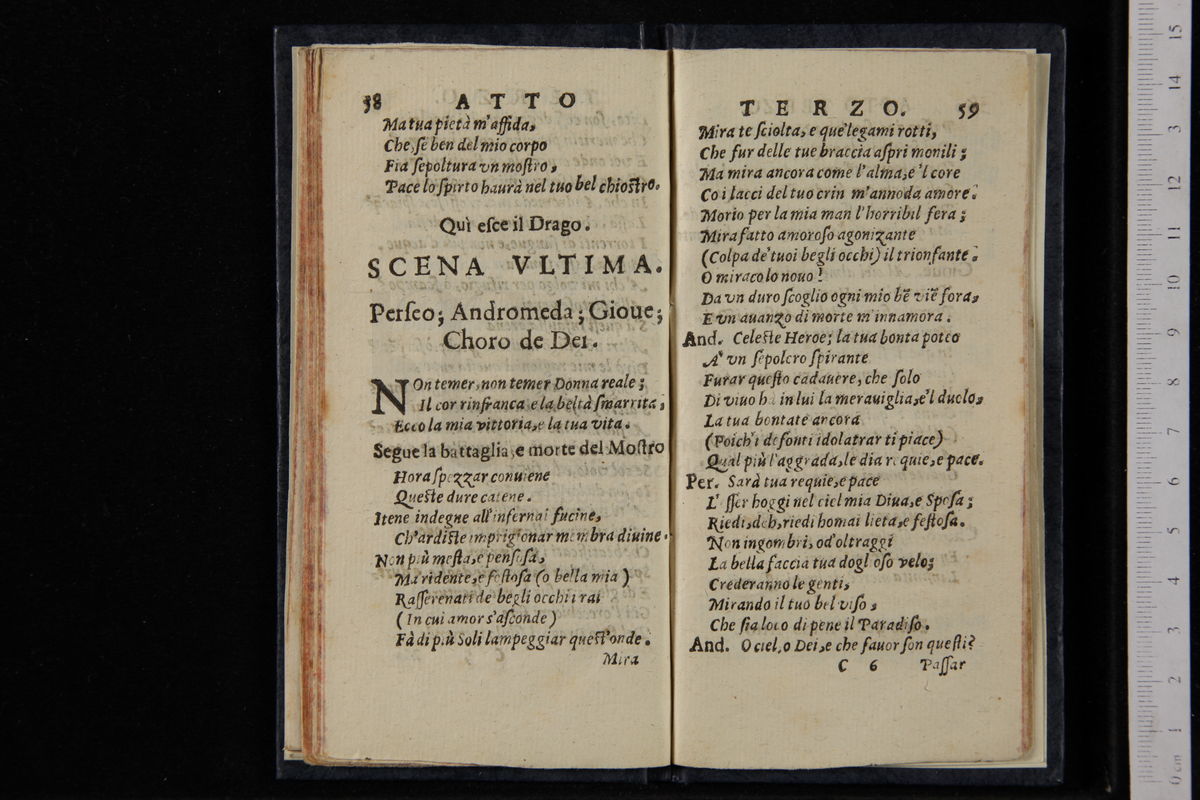 38 ATTO
Ma tua pietà m'affida,
Che, se ben del mio corpo
Fia sepoltura vn mostro,
Pace lo spirto haurà nel tuo bel chiostro.
Quì esce il Drago.
SCENA VLTIMA.
Perseo; Andromeda; Gioue;
Choro de Dei.
NOn temer, non temer Donna reale;
Il cor rinfranca e la beltà smarrita;
Ecco la mia vittoria, e la tua vita.
Segue la battaglia, e morte del Mostro
Hora spezzar conuiene
Queste dure catene.
Itene indegne all'infernal fucine,
Ch'ardiste imprigionar membra diuine.
Non più mesta, e pensosa,
Ma ridente, e festosa (o bella mia)
Rasserenati de begli occhi i rai
(In cui amor s'asconde)
Fà di più Soli lampeggiar quest'onde.
Mira
TERZO. 59
Mira te sciolta, e que' legami rotti,
Che fur delle tue braccia aspri monili;
Ma mira ancora come l'alma, e 'l core
Co i lacci del tuo crin m'annoda amore.
Morio per la mia man l'horribil fera;
Mira fatto amoroso agonizante
(Colpa de' tuoi begli occhi) il trionfante.
O miracolo nouo!
Da vn duro scoglio ogni mio bẽ viẽ fora,
E vn auanzo di morte m'innamora.
And. Celeste Heroe; la tua bonta poteo
A' vn sepolcro spirante
Furar questo cadauere, che solo
Di viuo ha in lui la merauiglia, e'l duolo,
La tua bontate ancora
(Poich'i defonti idolatrar ti piace)
Qual più l'aggrada, le dia requie, e pace.
Per. Sarà tua requie, e pace
L'esser hoggi nel ciel mia Diua, e Sposa;
Riedi, deh, riedi homai lieta, e festosa.
Non ingombri, od'oltraggi
La bella faccia tua doglioso velo;
Crederanno le genti,
Mirando il tuo bel viso,
Che sia loco di pene il Paradiso.
And. O ciel, o Dei, e che fauor son questi?
C 6 Passar
0 cm 1 2 3 4 5 6 7 8 9 10 11 12 13 14 15